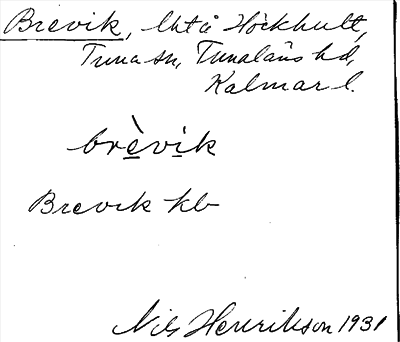 Brevik, lht å Höckhult,
Tuna sn, Tunaläns hd,
Kalmar l.
brèvik
Brevik kb
Nils Henrikson 1931